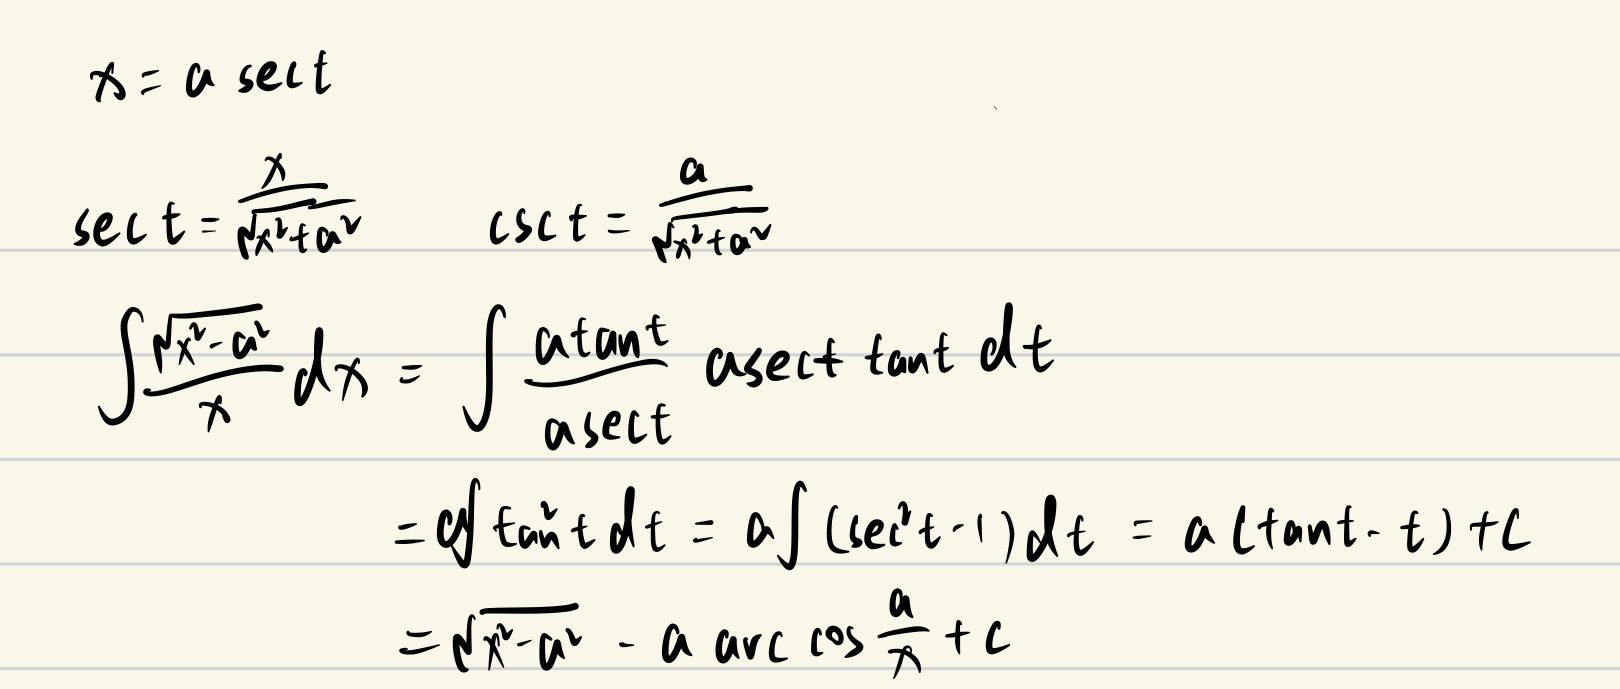 x = a sec t
sec t = x/√(x²+a²) csc t = a/√(x²+a²)
∫ √(x²-a²)/x dx = ∫ (a tan t)/(a sec t) a sec t tan t dt
= a∫ tan² t dt = a∫ (sec² t - 1) dt = a (tan t - t) + C
= √(x²-a²) - a arc cos a/x + C